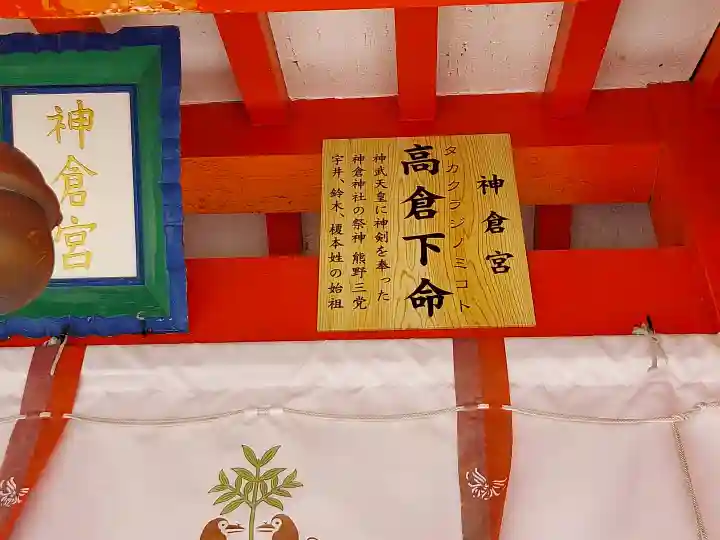 神倉宮
神倉宮
タカクラジノミコト
高倉下命
神武天皇に神剣を奉った
神倉神社の祭神 熊野三党
宇井、鈴木、榎本姓の始祖